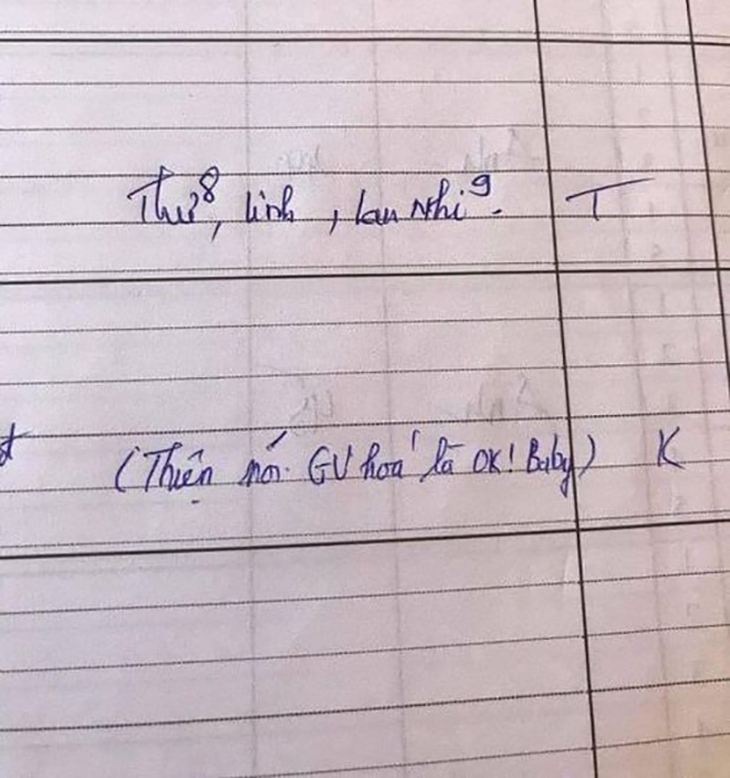 Thư⁸, linh, Lan Nhi⁹. T
(Thiện nói GV hoá là OK! Baby) K